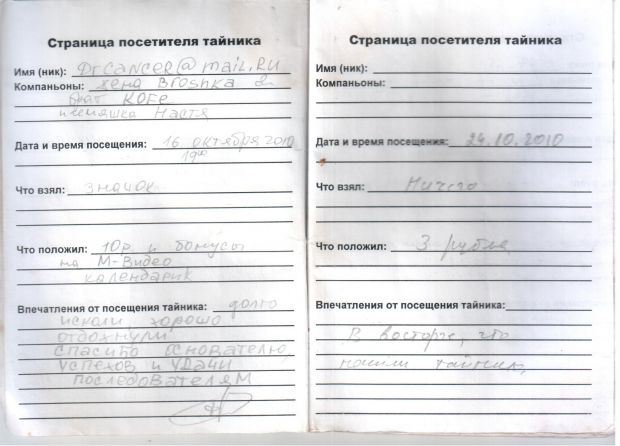 Страница посетителя тайника
Имя (ник): DrCANCER@mail.RU
Компаньоны: жена Broshka &
брат KOFE
племяшка Настя
Дата и время посещения: 16 октября 2010
19⁰⁰
Что взял: значок
Что положил: 10р и бонусы
на М-Видео
календарик
Впечатления от посещения тайника: долго
искали, хорошо
отдохнули
спасибо основателю,
успехов и удачи
последователям
Страница посетителя тайника
Имя (ник):
Компаньоны:
Дата и время посещения: 24.10.2010
Что взял: Ничего
Что положил: 3 рубля
Впечатления от посещения тайника:
В восторге, что
нашли тайник,